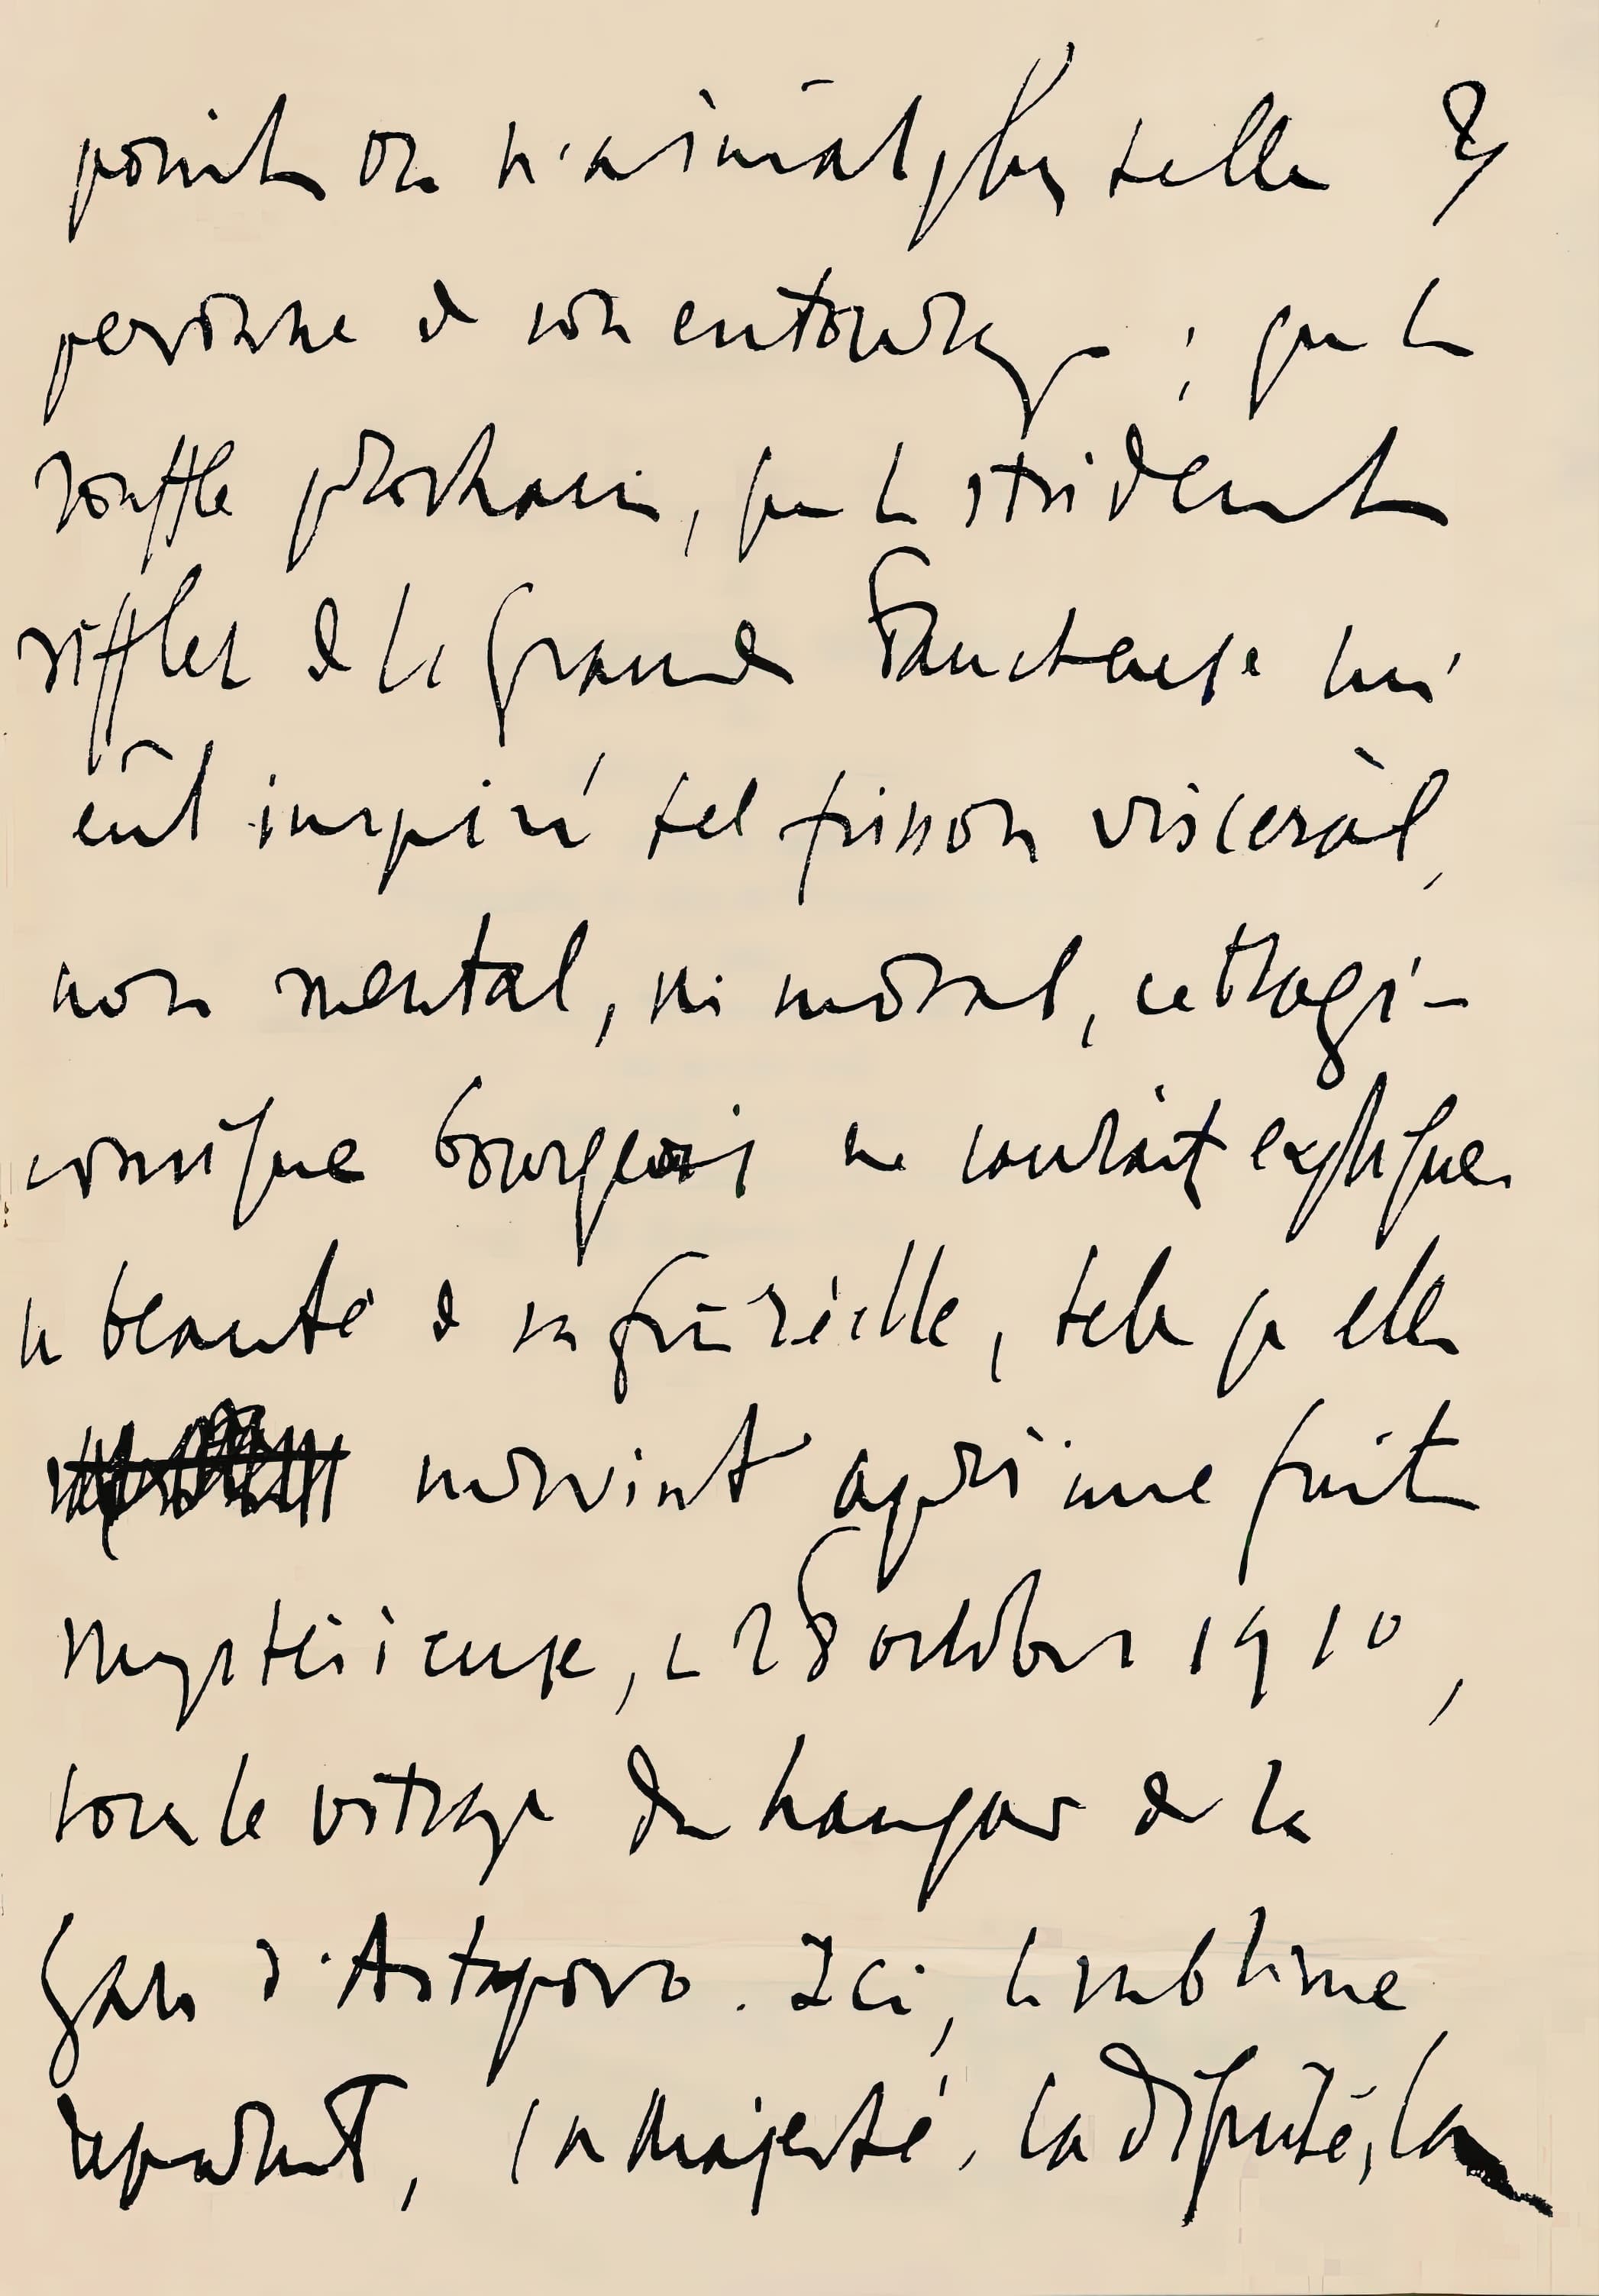 point on n'aimât plus telle
personne de son entourage ; que le
souffle prochain, que le strident
sifflet de la grande Faucheuse lui
eût inspiré tel frisson viscéral,
non mental, ni moral, ce tragi-
comique bourgeois ne saurait expliquer
la beauté de sa fin réelle, telle qu'elle
survint après une fuite
mystérieuse, le 28 octobre 1910,
sous le vitrage du hangar de la
gare d'Astapovo. Ici, le sublime
reparaît, la majesté, la dignité, la